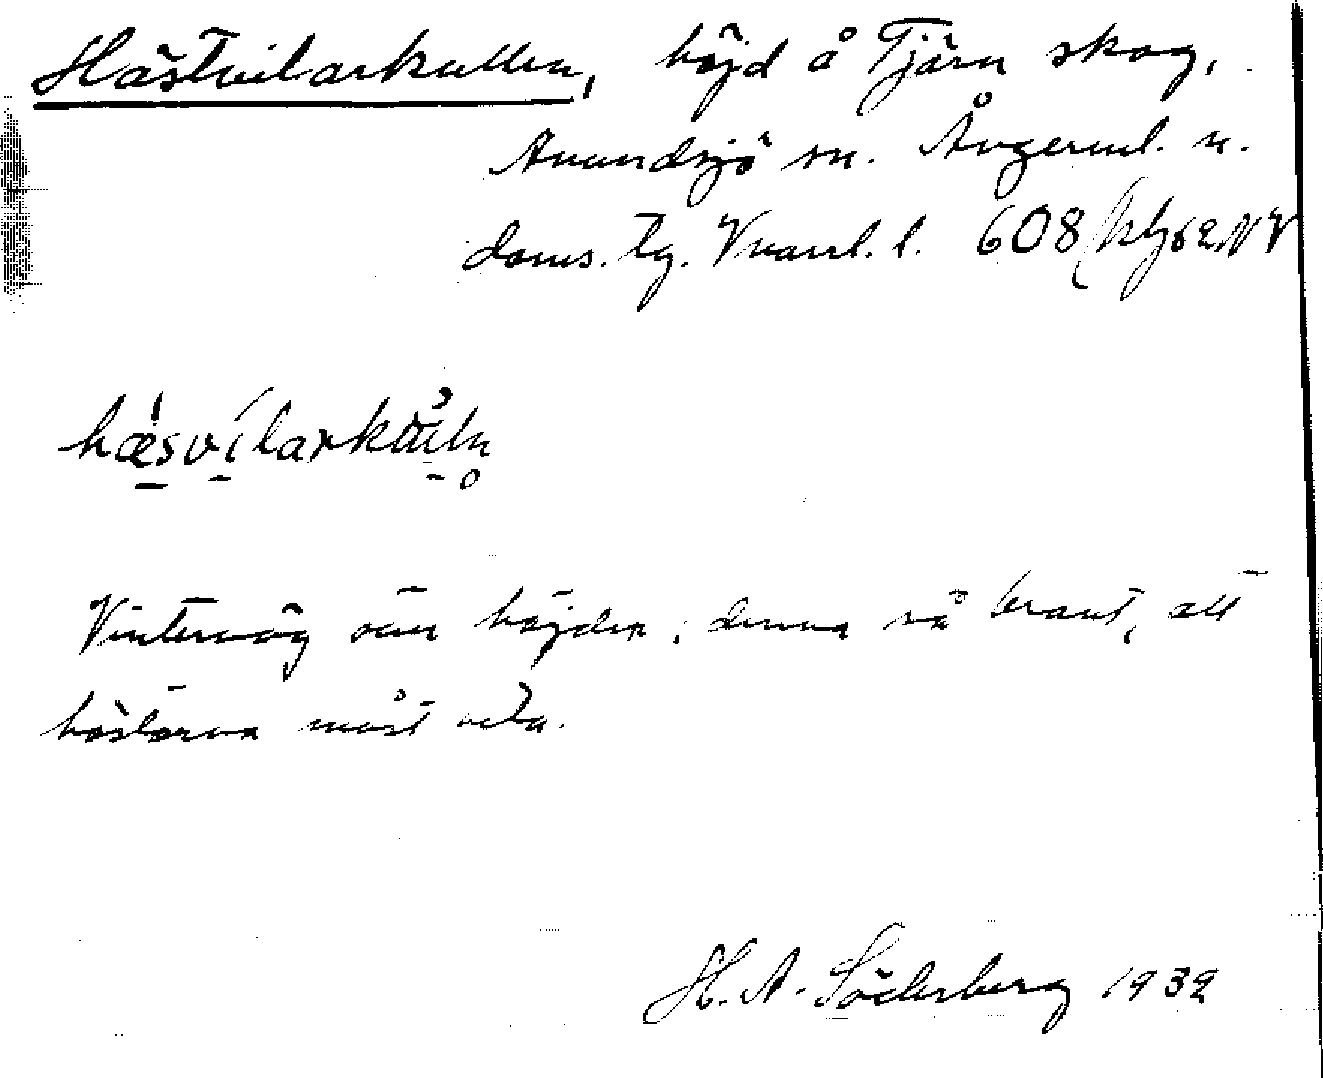 Hästvilarkullen, höjd å Tjärn skog,
Anundsjö sn. Ångerml. n.
doms. tg. Vnarrl. l. 608 (kbl 62 NV
hæsvilarkuln
Vinterväg över höjden; denna så brant, att
hästarna måst vila.
H. A. Söderberg 1932